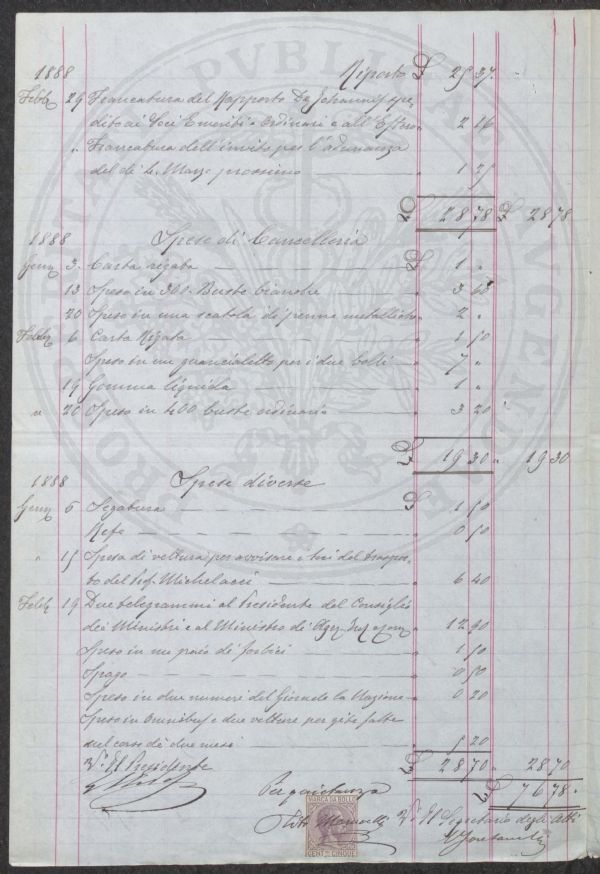 1888 Riporto £ 25 37.
Febb. 29 Francatura del Rapporto De Johannis spe-
dito ai Soci Emeriti e Ordinari e all'Estero „ 2 16
„ Francatura dell'invito per l'adunanza
del dì 4 Marzo prossimo „ 1 25
£ 28 78 £ 28 78
1888 Spese di Cancelleria
Genn. 3 Carta rigata £ 1 „
13 Speso in 300 Buste bianche „ 3 60
20 Speso in una scatola di penne metalliche „ 2 „
Febb. 6 Carta Rigata „ 1 50
Speso in un guancialetto per i due bolli „ 7 „
19 Gomma liquida „ 1 „
„ 20 Speso in 400 buste ordinarie „ 3 20
£ 19 30 „ 19 30
1888 Spese diverse
Genn. 6 Segatura £ 1 50
Refe „ 0 50
„ 15 Spesa di vettura per avvisare i Soci del traspor-
to del Prof. Michelacci „ 6 40
Febb. 19 Due telegrammi al Presidente del Consiglio
dei Ministri e al Ministro di Agr. Ind. e Com. „ 12 90
Speso in un paio di forbici „ 1 50
Spago „ 0 50
Speso in due numeri del Giornale la Nazione „ 0 20
Speso in Omnibus e due vetture per gite fatte
nel corso di due mesi „ 5 20
V° Il Presidente £ 28 70 „ 28 70
£ 76 78
Per quietanza
V° Il Segretario degli Atti
MARCA DA BOLLO
CENT. CINQUE